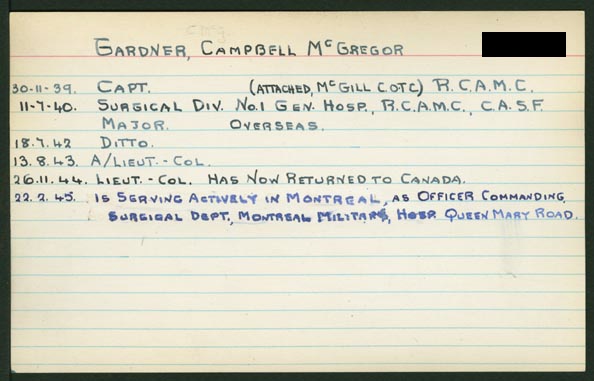 GARDNER, CAMPBELL McGREGOR
30-11-39. CAPT. (ATTACHED, McGILL C.OT.C.) R.C.A.M.C.
11-7-40. SURGICAL DIV. NO.1 GEN. HOSP., R.C.A.M.C., C.A.S.F.
MAJOR. OVERSEAS.
18.7.42 DITTO.
13.8.43. A/LIEUT.-COL.
26.11.44. LIEUT.-COL. HAS NOW RETURNED TO CANADA.
22.2.45. IS SERVING ACTIVELY IN MONTREAL, AS OFFICER COMMANDING,
SURGICAL DEPT, MONTREAL MILITARY, HOSP. QUEEN MARY ROAD.